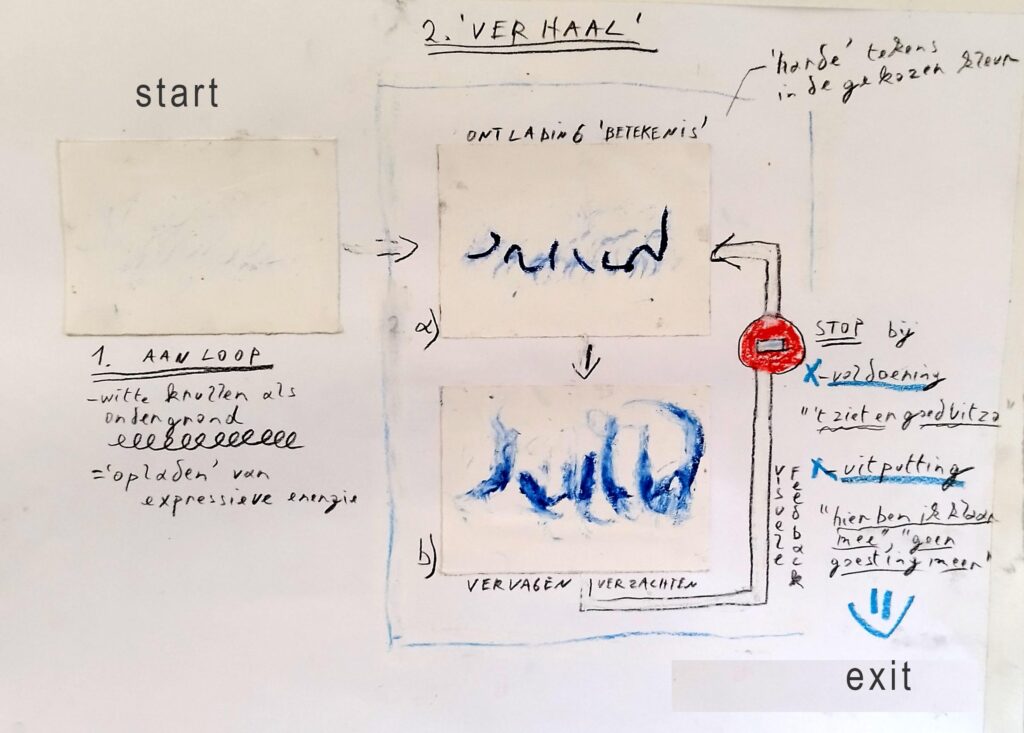 2. 'VERHAAL'
'harde' tekens
in de gekozen kleur
start
ONTLADING 'BETEKENIS'
a)
1. AANLOOP
-witte krullen als
ondergrond
= 'opladen' van
expressieve energie
STOP bij
X-voldoening
"'t ziet er goed uit zo"
X-uitputting
"hier ben ik klaar
mee", "geen
goesting meer"
VISUELE
FEEDBACK
b)
VERVAGEN / VERZACHTEN
exit